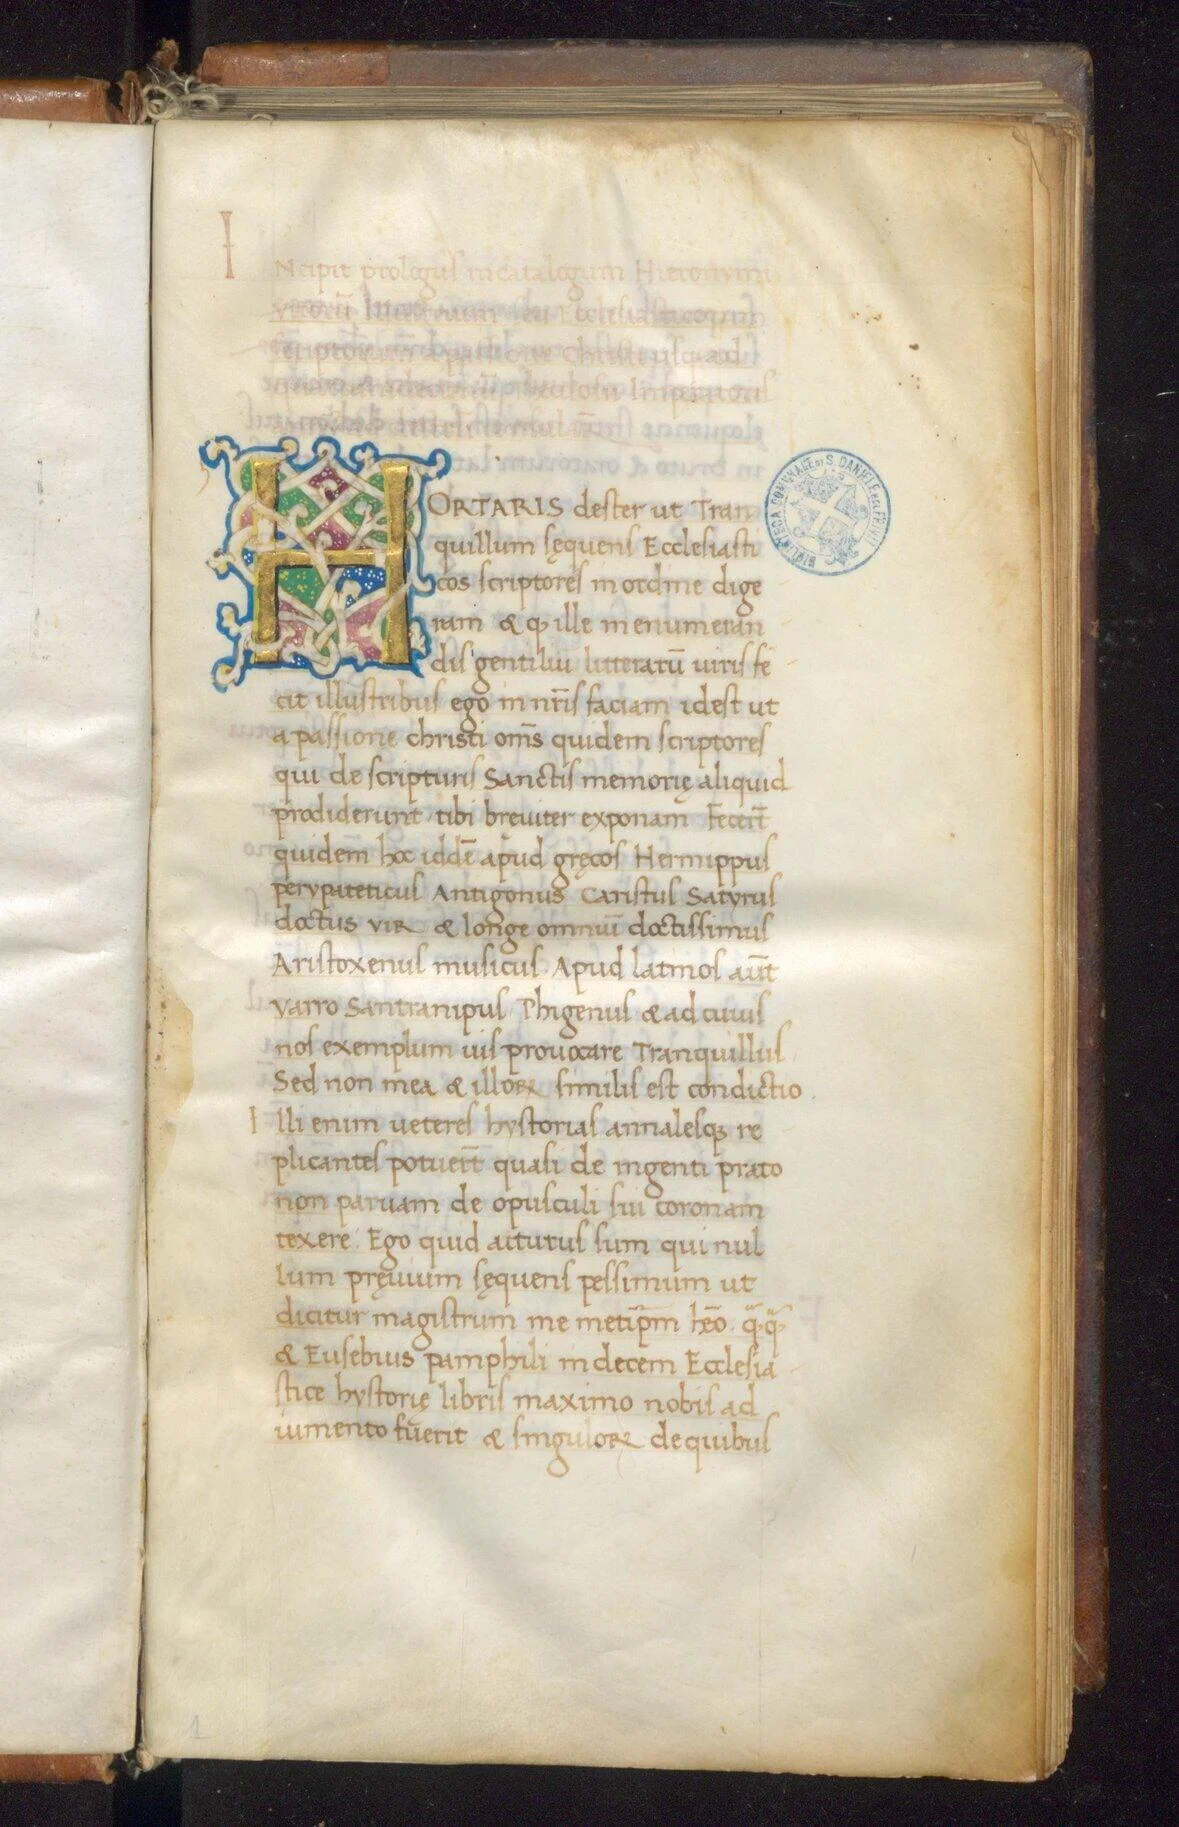 INcipit prologus in catalogum Hieronymi
virorũ Illustrium seu Ecclesiasticoꝝ
scriptorum a passione Christi usq; ad
Imperatoris
HORTARIS dexter ut Tran
quillum sęquens Ecclesiasti
cos scriptores in ordine dige
ram & ꝙ ille in enumeran
dis gentiliũ litterarũ uiris fe
cit illustribus ego in nr̃is faciam idest ut
a passione christi om̃s quidem scriptores
qui de scripturis Sanctis memorię aliquid
prodiderunt tibi breuiter exponam Fecer̃t
quidem hoc iddẽ apud gręcos Hermippus
perypateticus Antigonus Caristus Satyrus
doctus vir & longe omniũ doctissimus
Aristoxenus musicus Apud latinos aũt
varro Santranipus Phigenus & ad cuius
nos exemplum uis prouocare Tranquillus
Sed non mea & illoꝝ similis est condictio.
Illi enim ueteres hystorias annalesq; re
plicantes potuer̃t quasi de ingenti prato
non paruam de opusculi sui coronam
texere. Ego quid acturus sum qui nul
lum pręuium sęquens pessimum ut
dicitur magistrum me metip̃m hẽo. q̃q̃
& Eusebius pamphili in decem Ecclesia
stice hystorię libris maximo nobis ad
iumento fuerit & singuloꝝ de quibus
BIBLIOTECA COMUNALE DI S. DANIELE DEL FRIULI
1